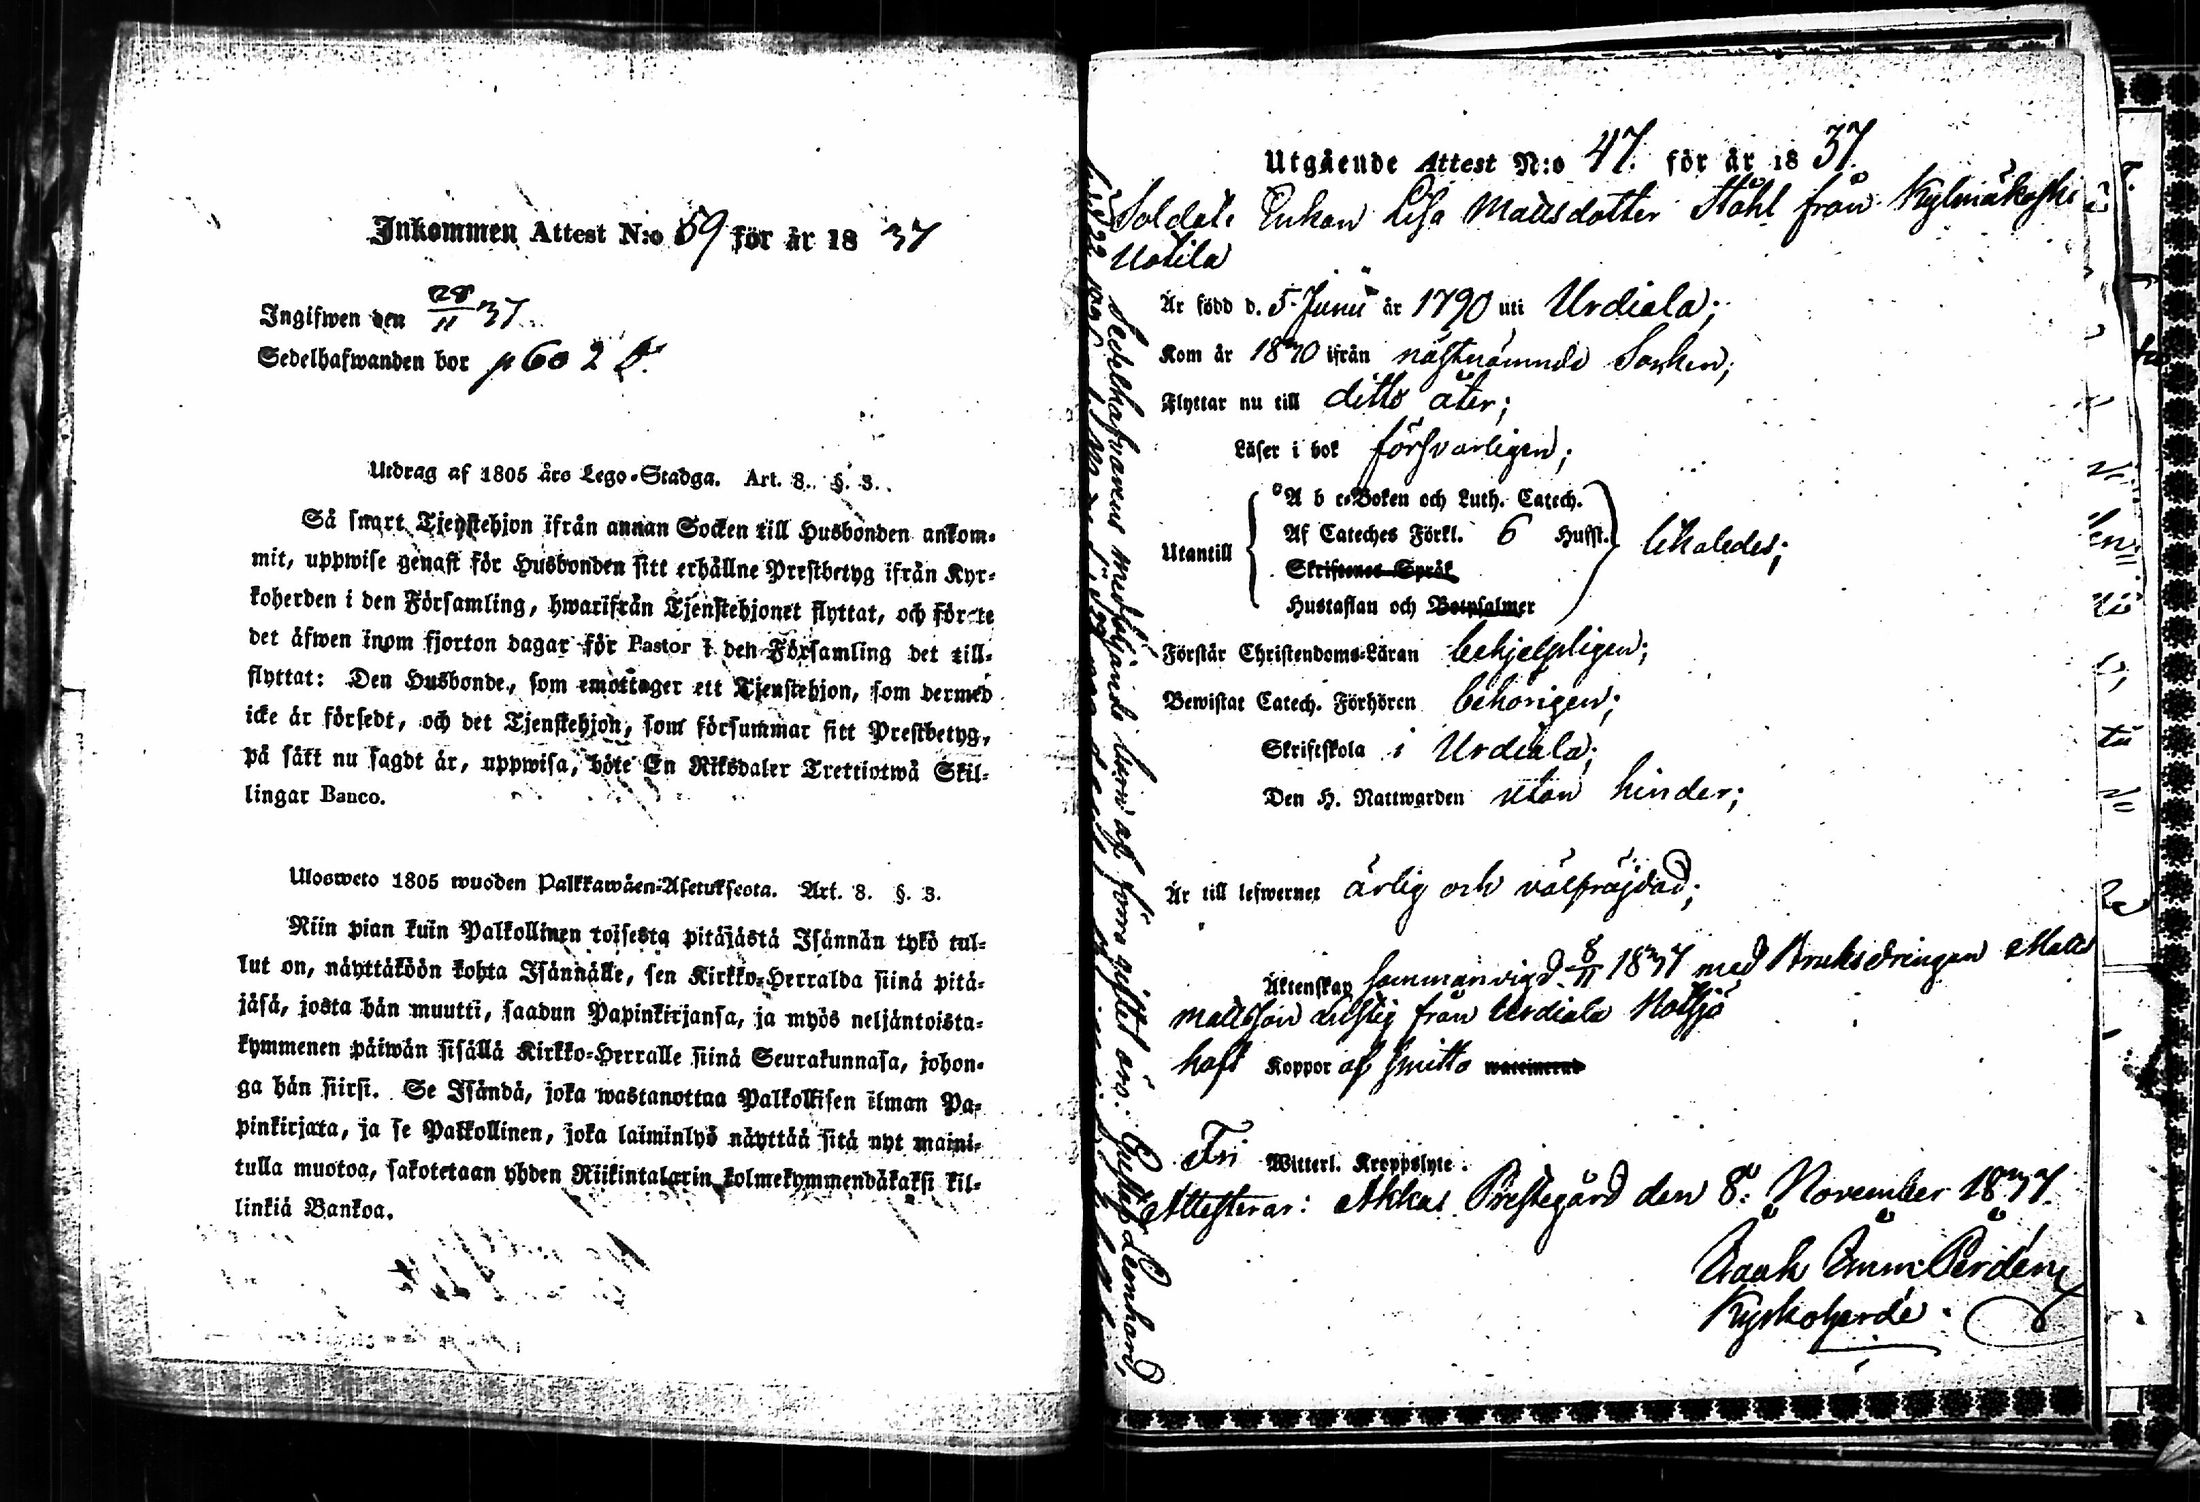 Inkommen Attest N:o 59 för år 18 37
Ingifwen den 28/11 37.
Sedelhafwanden bor p 602
Utdrag af 1805 års Lego-Stadga. Art. 8. §. 3.
Så snart Tjenstehjon ifrån annan Socken till Husbonden ankom-
mit, uppwise genast för Husbonden sitt erhållne Prestbetyg ifrån Kyr-
koherden i den Församling, hwarifrån Tjenstehjonet flyttat, och förete
det äfwen inom fjorton dagar för Pastor i den Församling det till-
flyttat: Den Husbonde, som emottager ett Tjenstehjon, som dermed
icke är försedt, och det Tjenstehjon, som försummar sitt Prestbetyg,
på sätt nu sagdt är, uppwisa, böte En Riksdaler Trettiotwå Skil-
lingar Banco.
Ulosweto 1805 wuoden Palkkawäen-Asetuksesta. Art. 8. §. 3.
Niin pian kuin Palkollinen toisesta pitäjästä Isännän tykö tul-
lut on, näyttäköön kohta Isännälle, sen Kirkko-Herralda siinä pitä-
jäsä, josta hän muutti, saadun Papinkirjansa, ja myös neljäntoista-
kymmenen päiwän sisällä Kirkko-Herralle siinä Seurakunnasa, johon-
ga hän siirsi. Se Isändä, joka wastanottaa Palkollisen ilman Pa-
pinkirjata, ja se Palkollinen, joka laiminlyö näyttää sitä nyt maini-
tulla muotoa, sakotetaan yhden Riikintalarin kolmekymmendäkaksi kil-
linkiä Bankoa.
Utgående Attest N:o 47. för år 18 37.
Soldats Enkan Lisa Mattsdotter Ståhl från Kylmäkoski
Uotila
Är född d. 5 Junii år 1790 uti Urdiala;
Kom år 1830 ifrån nästnämnde Socken;
Flyttar nu till ditto åter;
Läser i bok försvarligen;
Utantill
A b c-Boken och Luth. Catech.
Af Cateches Förkl. 6 Hufst.
Skriftenes Språk
Hustaflan och Botpsalmer
likaledes;
Förstår Christendoms-Läran behjelpligen;
Bewistat Catech. Förhören behörigen;
Skriftskola i Urdiala;
Den H. Nattwarden utan hinder;
Är till lefwernet ärlig och välfräjdad;
Äktenskap sammanvigd 8/11 1837 med Bruksdrängen Matts
Mattsson Lustig från Urdiala Notsjö
haft Koppor af smitto waccinerad
Fri Witterl. Kroppslyte.
Attesterar: Akkas Prestegård den 8. November 1837.
Kyrkoherde.
Sedelhafvarens medföljande barn af förra giftet äro: Gustaf Leonhard,